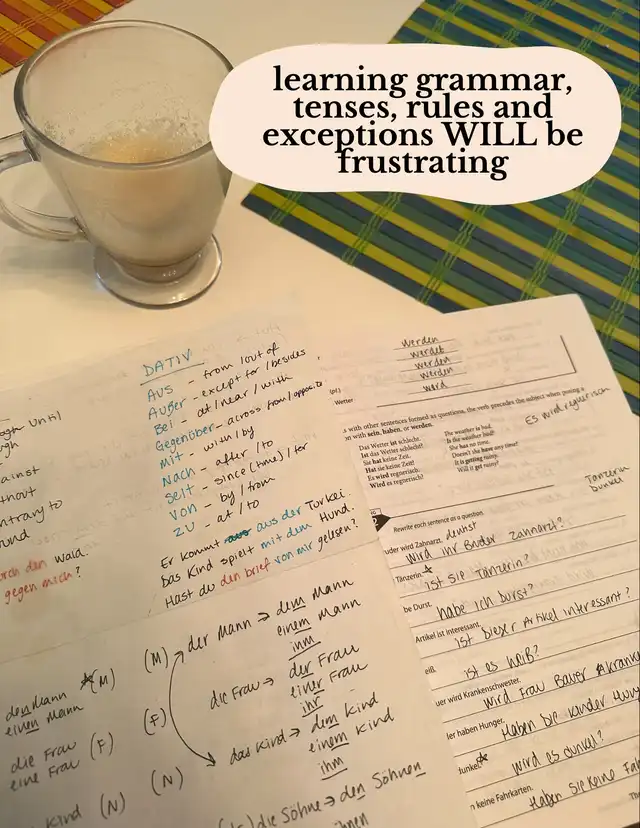 learning grammar,
tenses, rules and
exceptions WILL be
frustrating
until
ainst
thout
ntrary to
und
den Wald.
gegen mich?
DATIV
AUS - from / out of
Außer - except for / besides
Bei - at / near / with
Gegenüber - across from / opposite
Mit - with / by
Nach - after / to
Seit - since (time) / for
Von - by / from
ZU - at / to
Er kommt aus der Türkei.
Das Kind spielt mit dem Hund.
Hast du den brief von mir gelesen?
den Mann (M)
einen Mann
die Frau (F)
eine Frau
Kind (N)
(M) der Mann → dem Mann
einem Mann
ihm
(F) die Frau → der Frau
einer Frau
ihr
(N) das Kind → dem Kind
einem Kind
ihm
die Söhne → den Söhnen
werden
werdet
werden
werden
ward
(pl.)
Wetter
s with other sentences formed as questions, the verb precedes the subject when posing a
on with sein, haben, or werden.
Es wird regnerisch
Das Wetter ist schlecht. The weather is bad.
Ist das Wetter schlecht? Is the weather bad?
Sie hat keine Zeit. She has no time.
Hat sie keine Zeit? Doesn't she have any time?
Es wird regnerisch. It is getting rainy.
Wird es regnerisch? Will it get rainy?
Tänzerin
dunkel
Rewrite each sentence as a question.
uder wird Zahnarzt. dentist
Wird ihr Bruder Zahnarzt?
Tänzerin.
ist sie Tänzerin?
be Durst.
habe ich Durst?
Artikel ist interessant.
ist dieser Artikel interessant?
eiß.
ist es heiß?
uer wird Krankenschwester.
wird Frau Bauer
der haben Hunger.
Haben die kinder
dunkel.
wird es dunkel?
n keine Fahrkarten.
Haben sie keine